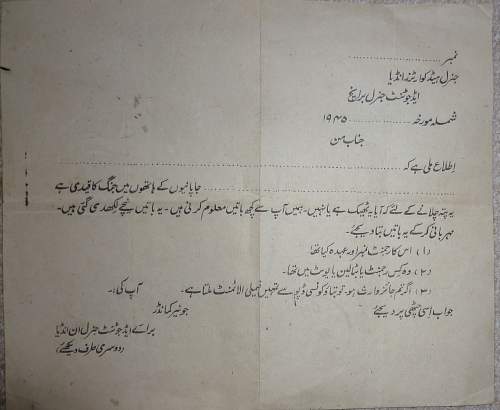 نمبر ........................
جنرل ہیڈ کوارٹرز انڈیا
ایڈجوٹنٹ جنرل برانچ
شملہ مورخہ ................ ۱۹۴۵
جناب من
اطلاع ملی ہے کہ ................................................
................................ جاپانیوں کے ہاتھوں میں جنگ کا قیدی ہے
یہ پتہ چلانے کے لئے کہ آیا یہ ٹھیک ہے یا نہیں۔ ہمیں آپ سے کچھ باتیں معلوم کرنی ہیں۔ یہ باتیں نیچے لکھ دی گئی ہیں۔
مہربانی کر کے یہ باتیں بتا دیجئے۔
(۱) اس کا رجمنٹ نمبر اور عہدہ کیا تھا
(۲) وہ کس رجمنٹ یا بٹالین یا یونٹ میں تھا۔
(۳) اگر تم جائز وارث ہو۔ تو بتاؤ کونسی ڈپو سے تمہیں فیملی الاٹمنٹ ملتا ہے۔ آپ کی۔
جواب اسی چٹھی پر دیجئے
جونیر کمانڈر
برائے ایڈجوٹنٹ جنرل ان انڈیا
(دوسری طرف دیکھئے)